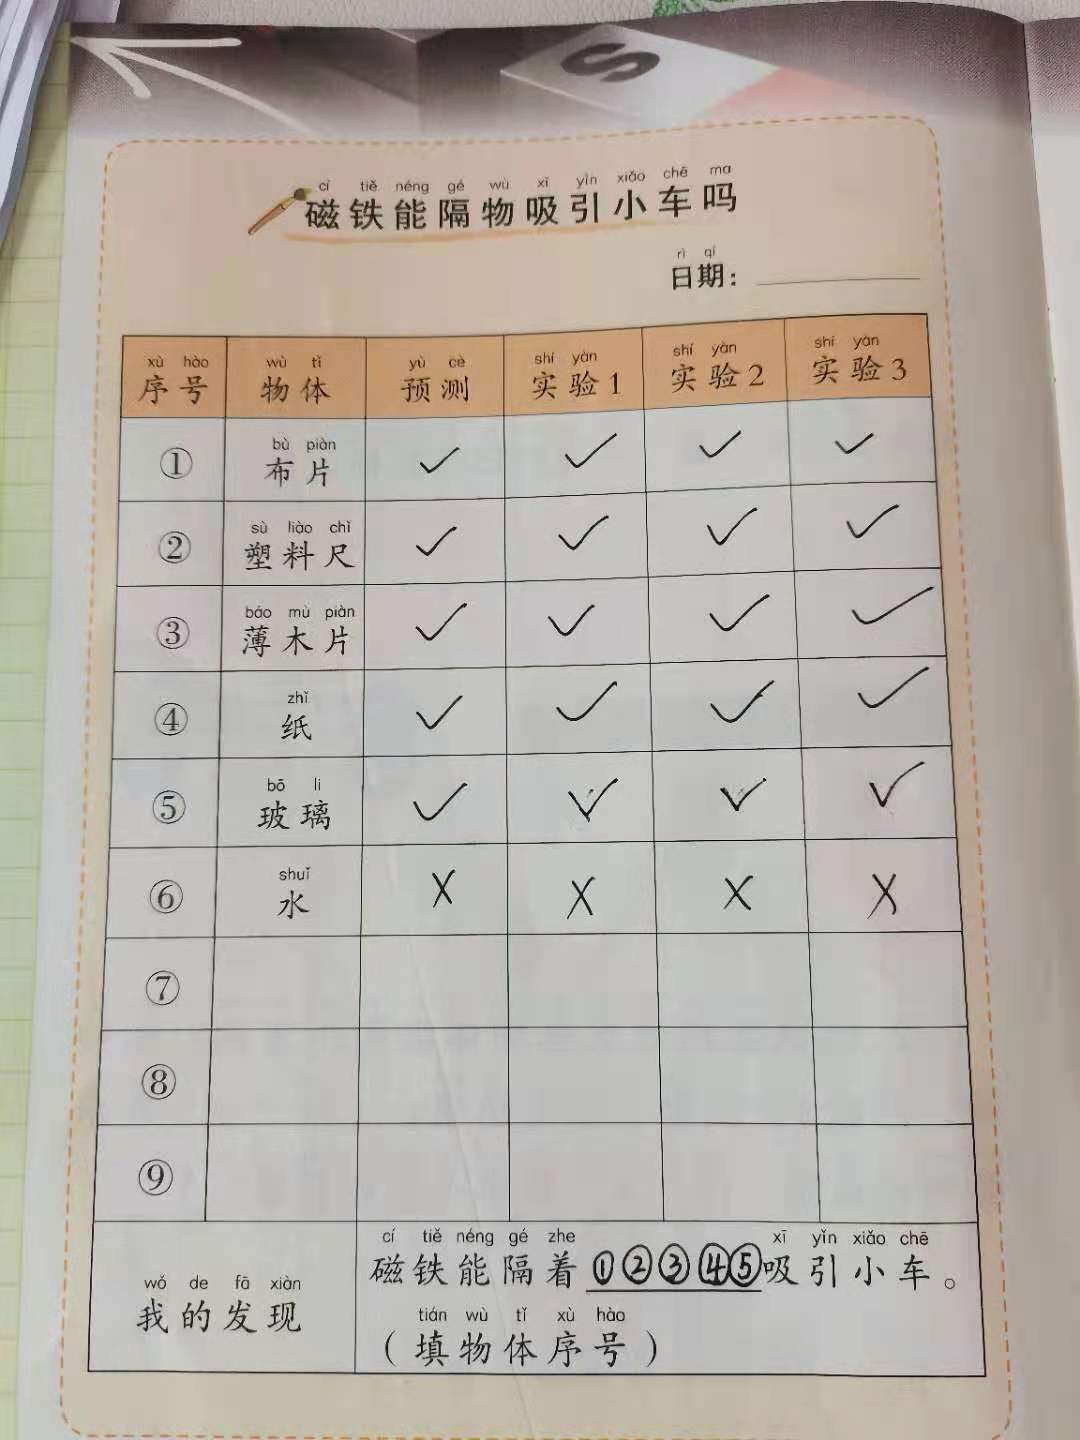 S
cí tiě néng gé wù xī yǐn xiǎo chē ma
磁铁能隔物吸引小车吗
rì qí
日期：
xù hào wù tǐ yù cè shí yàn shí yàn shí yàn
序号 物体 预测 实验1 实验2 实验3
bù piàn
① 布片 ✓ ✓ ✓ ✓
sù liào chǐ
② 塑料尺 ✓ ✓ ✓ ✓
báo mù piàn
③ 薄木片 ✓ ✓ ✓ ✓
zhǐ
④ 纸 ✓ ✓ ✓ ✓
bō li
⑤ 玻璃 ✓ ✓ ✓ ✓
shuǐ
⑥ 水 X X X X
⑦
⑧
⑨
wǒ de fā xiàn
我的发现
cí tiě néng gé zhe xī yǐn xiǎo chē
磁铁能隔着①②③④⑤吸引小车。
tián wù tǐ xù hào
（填物体序号）